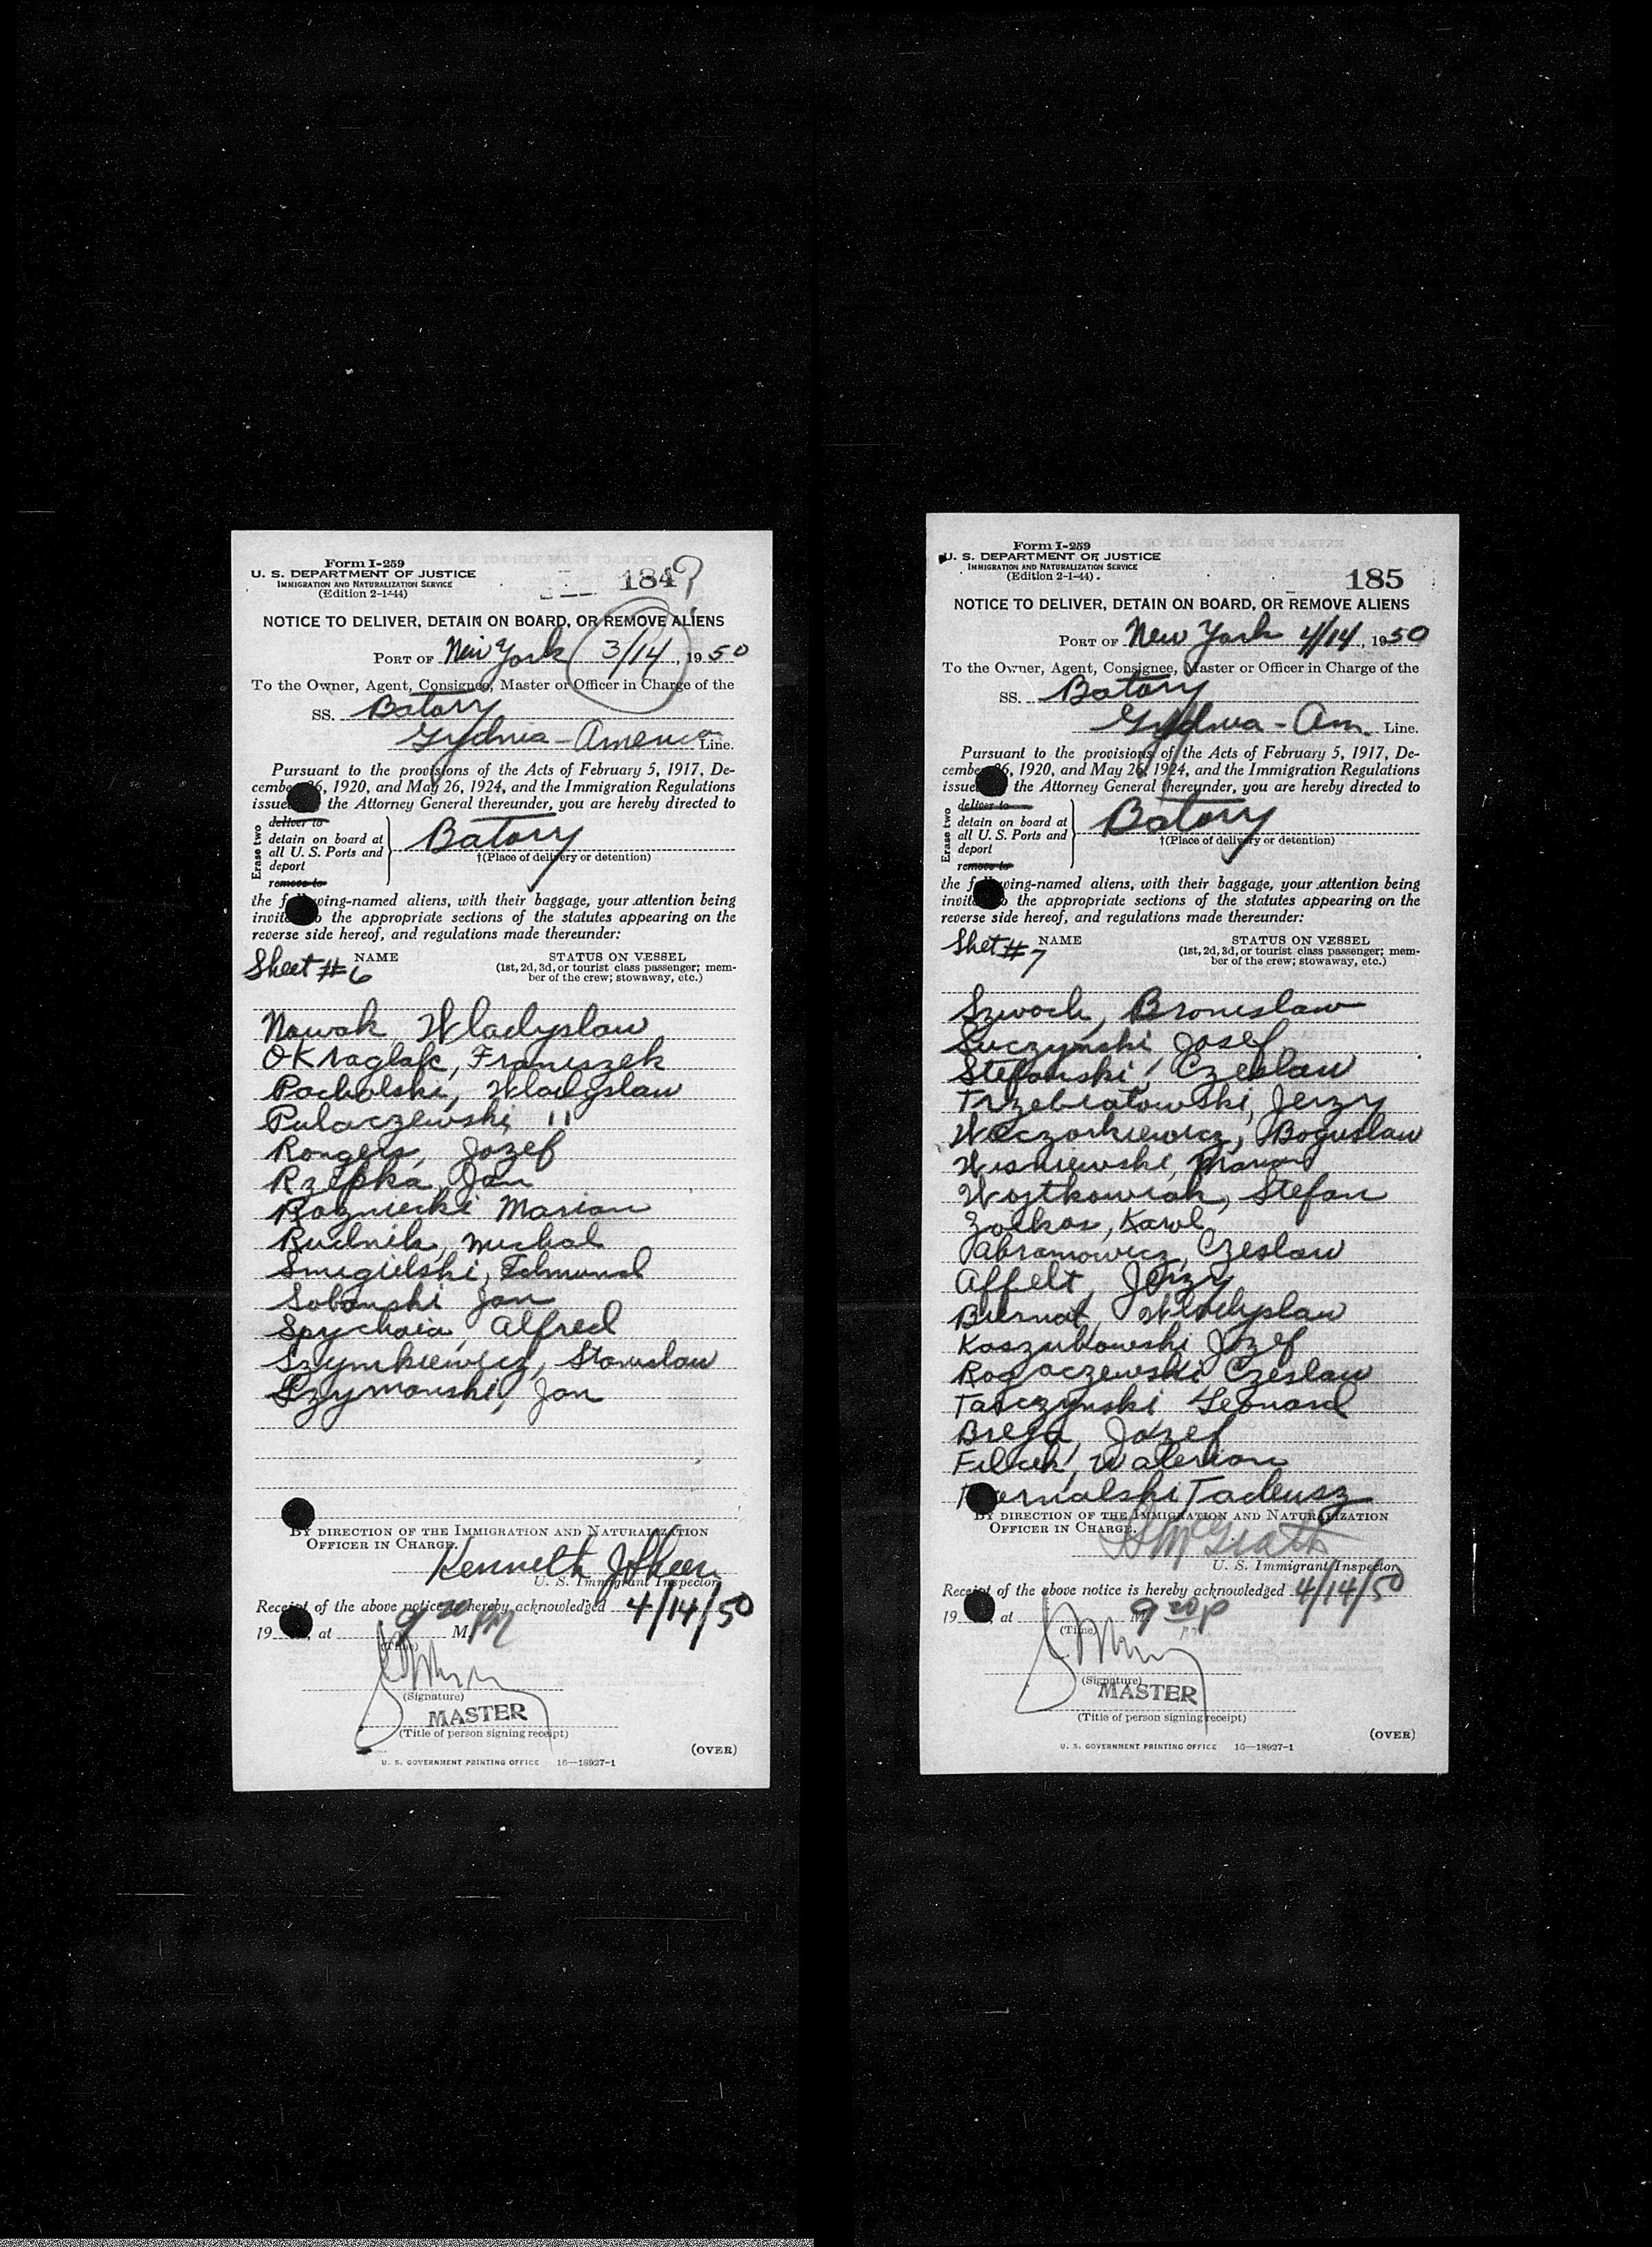 Form I-259
U. S. DEPARTMENT OF JUSTICE
IMMIGRATION AND NATURALIZATION SERVICE
(Edition 2-1-44)
184?
NOTICE TO DELIVER, DETAIN ON BOARD, OR REMOVE ALIENS
PORT OF New York 3/14, 1950
To the Owner, Agent, Consignee, Master or Officer in Charge of the
SS. Batory
Gydnia-America Line.
Pursuant to the provisions of the Acts of February 5, 1917, De-
cember 26, 1920, and May 26, 1924, and the Immigration Regulations
issued the Attorney General thereunder, you are hereby directed to
Erase two
deliver to
detain on board at
all U. S. Ports and
deport
remove to
Batory
†(Place of delivery or detention)
the following-named aliens, with their baggage, your attention being
invited to the appropriate sections of the statutes appearing on the
reverse side hereof, and regulations made thereunder:
Sheet #6 NAME
STATUS ON VESSEL
(1st, 2d, 3d, or tourist class passenger; mem-
ber of the crew; stowaway, etc.)
Nowak Wladyslaw
Okraglak, Franiszek
Pacholski, Wladyslaw
Pulaczewski, 11
Rongers, Jozef
Rzepka, Jan
Rozniecki Marian
Rudnik, Michal
Smigielski, Edmund
Sobanski Jan
Spychaia, Alfred
Szymkiewicz, Stanislaw
Szymanski, Jan
BY DIRECTION OF THE IMMIGRATION AND NATURALIZATION
OFFICER IN CHARGE.
Kenneth J.
U. S. Immigrant Inspector
Receipt of the above notice is hereby acknowledged 4/14/50
19 , at 9 20 M. PM
(Time)
(Signature)
MASTER
(Title of person signing receipt)
(OVER)
U. S. GOVERNMENT PRINTING OFFICE 16—18927-1
Form I-259
U. S. DEPARTMENT OF JUSTICE
IMMIGRATION AND NATURALIZATION SERVICE
(Edition 2-1-44)
185
NOTICE TO DELIVER, DETAIN ON BOARD, OR REMOVE ALIENS
PORT OF New York 4/14, 1950
To the Owner, Agent, Consignee, Master or Officer in Charge of the
SS. Batory
Gydnia-Am. Line.
Pursuant to the provisions of the Acts of February 5, 1917, De-
cember 26, 1920, and May 26, 1924, and the Immigration Regulations
issued the Attorney General thereunder, you are hereby directed to
Erase two
deliver to
detain on board at
all U. S. Ports and
deport
remove to
Batory
†(Place of delivery or detention)
the following-named aliens, with their baggage, your attention being
invited to the appropriate sections of the statutes appearing on the
reverse side hereof, and regulations made thereunder:
Shet #7 NAME
STATUS ON VESSEL
(1st, 2d, 3d, or tourist class passenger; mem-
ber of the crew; stowaway, etc.)
Szwoch, Bronislaw
Suczynski, Josef
Stefanski, Czeslaw
Trzebiatowski, Jerzy
Weczorkiewicz, Boguslaw
Wisniewski, Marian
Wojtkowiak, Stefan
Zolkos, Karol
Abramowicz, Czeslaw
Affelt, Jerzy
Biernat, Wladyslaw
Kaszubowski Jozef
Rogaczewski Czeslaw
Tarczynski Leonard
Brega, Jozef
Filcek, Walerian
Tadeusz
BY DIRECTION OF THE IMMIGRATION AND NATURALIZATION
OFFICER IN CHARGE.
McGrath
U. S. Immigrant Inspector
Receipt of the above notice is hereby acknowledged 4/14/50
19 , at M. 9 20 p
(Time)
(Signature)
MASTER
(Title of person signing receipt)
(OVER)
U. S. GOVERNMENT PRINTING OFFICE 16—18927-1